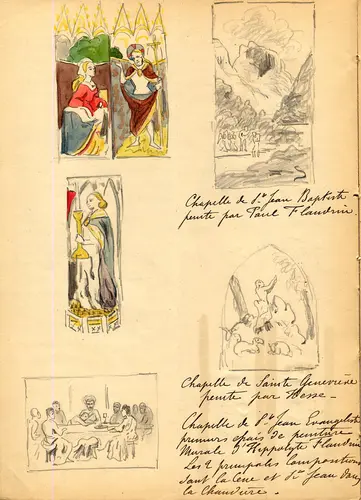 Chapelle de St Jean Baptiste
peinte par Paul Flandrin
Chapelle de Sainte Geneviève
peinte par Hesse
Chapelle de St Jean Evangeliste
premiers essais de peinture
Murale d'Hippolyte Flandrin
Les 2 principales Compositions
Sont la Cène et St Jean dans
la Chaudière.